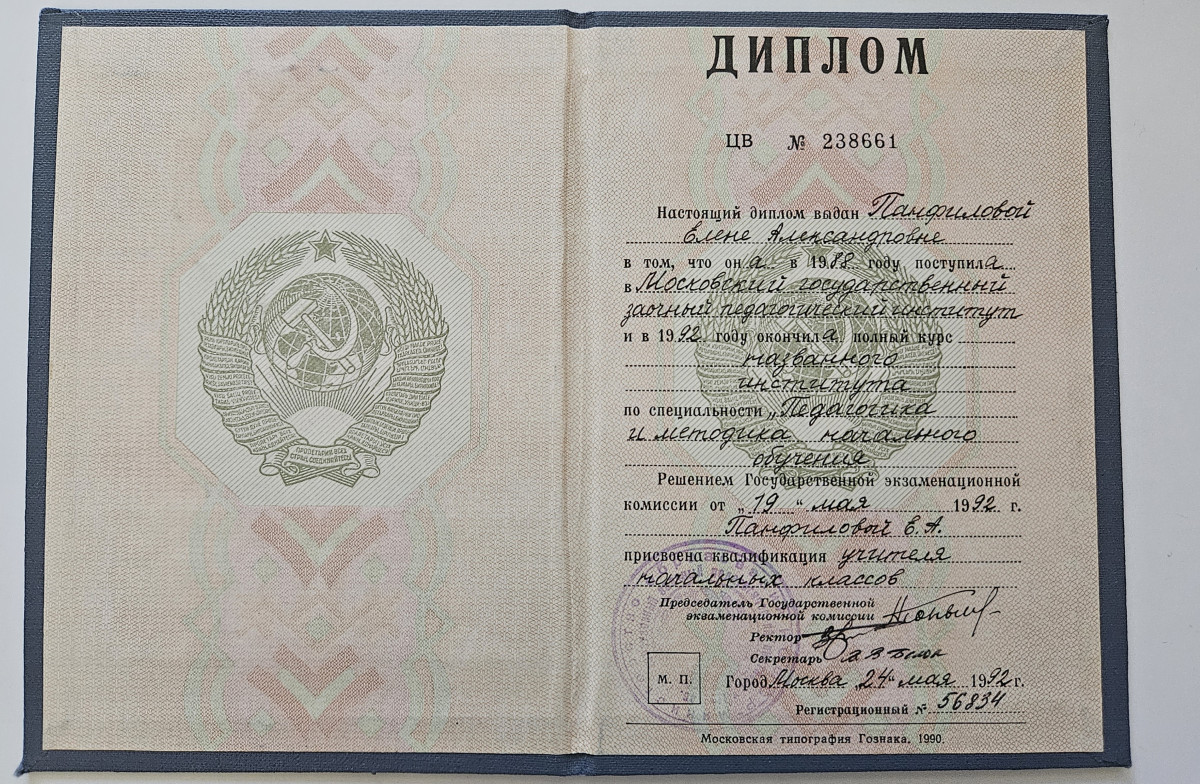 ПРОЛЕТАРИИ ВСЕХ
СТРАН, СОЕДИНЯЙТЕСЬ!
ДИПЛОМ
ЦВ № 238661
Настоящий диплом выдан Панфиловой
Елене Александровне
в том, что он а в 1988 году поступила
в Московский государственный
заочный педагогический институт
и в 1992 году окончила полный курс
названного
института
по специальности „Педагогика
и методика начального
обучения
Решением Государственной экзаменационной
комиссии от „19“ мая 1992 г.
Панфиловой Е.А.
присвоена квалификация учителя
начальных классов
Председатель Государственной
экзаменационной комиссии
Ректор
Секретарь
М. П.
Город Москва „24“ мая 1992 г.
Регистрационный № 56834
Московская типография Гознака. 1990.